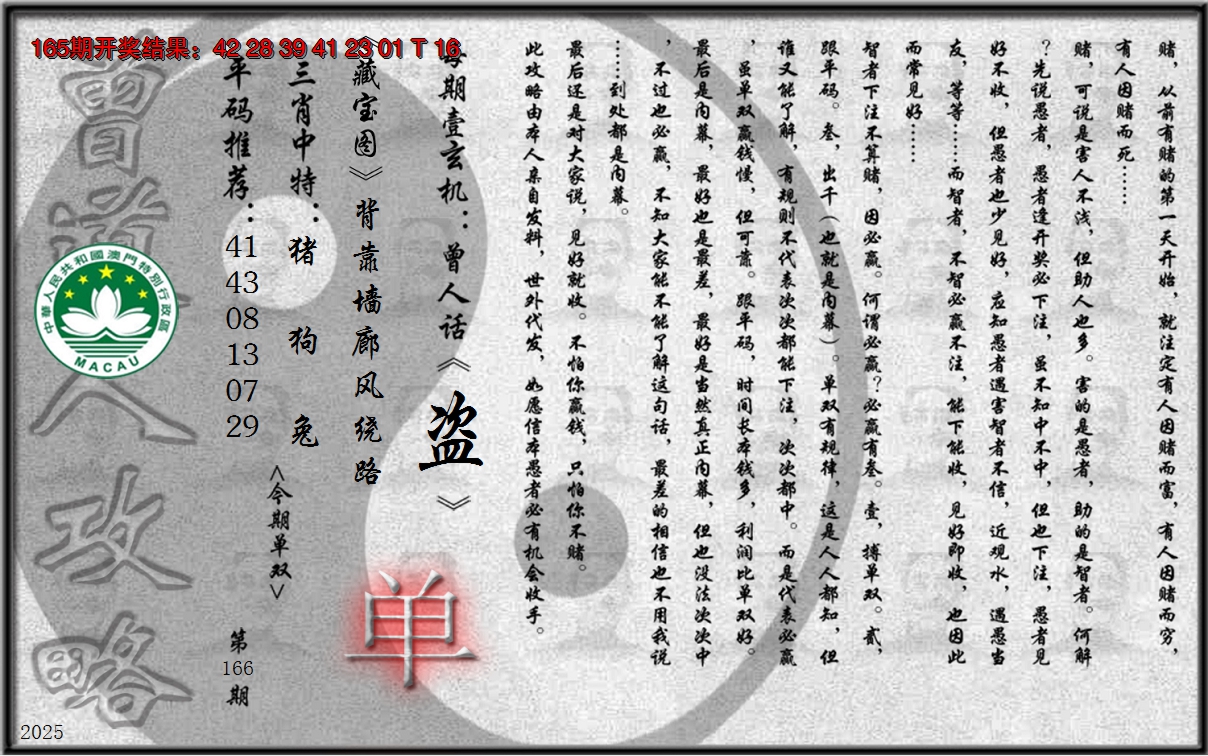 165期开奖结果：42 28 39 41 23 01 T 16
赌，从前有赌的第一天开始，就注定有人因赌而富，有人因赌而穷，
有人因赌而死……
赌，可说是害人不浅，但助人也多。害的是愚者，助的是智者。何解
？先说愚者，愚者逢开奖必下注，虽不知中不中，但也下注，愚者见
好不收，但愚者也少见好，应知愚者遇害智者不信，近观水，遇愚当
友，等等……而智者，不智必赢不注，能下能收，见好即收，也因此
而常见好……
智者下注不算赌，因必赢。何谓必赢？必赢有叁。壹，搏单双。贰，
跟平码。叁，出千（也就是内幕）。单双有规律，这是人人都知，但
谁又能了解，有规则不代表次次都能下注，次次都中。而是代表必赢
，虽单双赢钱慢，但可靠。跟平码，时间长本钱多，利润比单双好。
最后是内幕，最好也是最差，最好是当然真正内幕，但也没法次次中
，不过也必赢，不知大家能不能了解这句话，最差的相信也不用我说
……到处都是内幕。
最后还是对大家说，见好就收。不怕你赢钱，只怕你不赌。
此攻略由本人亲自发料，世外代发，如愿信本愚者必有机会收手。
每期壹玄机：曾人话《盗》
《藏宝图》背靠墙廊风绕路
三肖中特：猪 狗 兔
<今期单双>
单
平码推荐：41 43 08 13 07 29
第166期
曾道人攻略
中華人民共和國澳門特別行政區
MACAU
2025